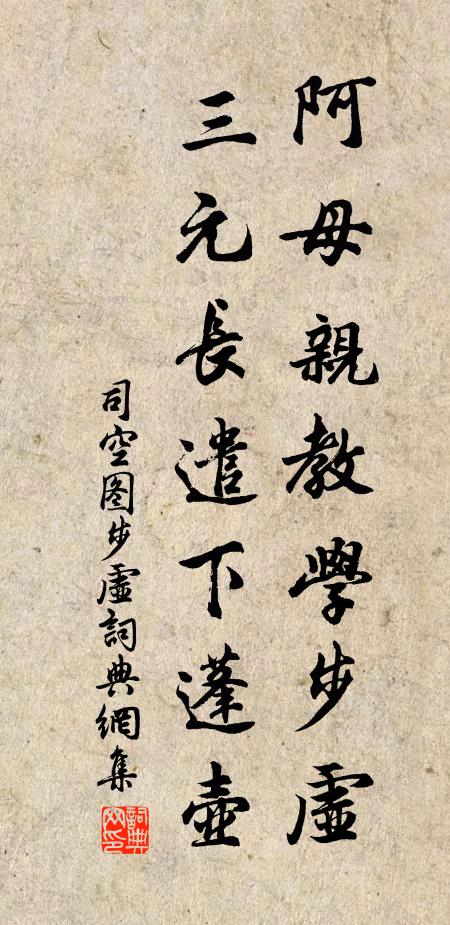 阿母親教學步虛
三元長遣下蓬壺
司空图步虛詞典網集
詞典网印